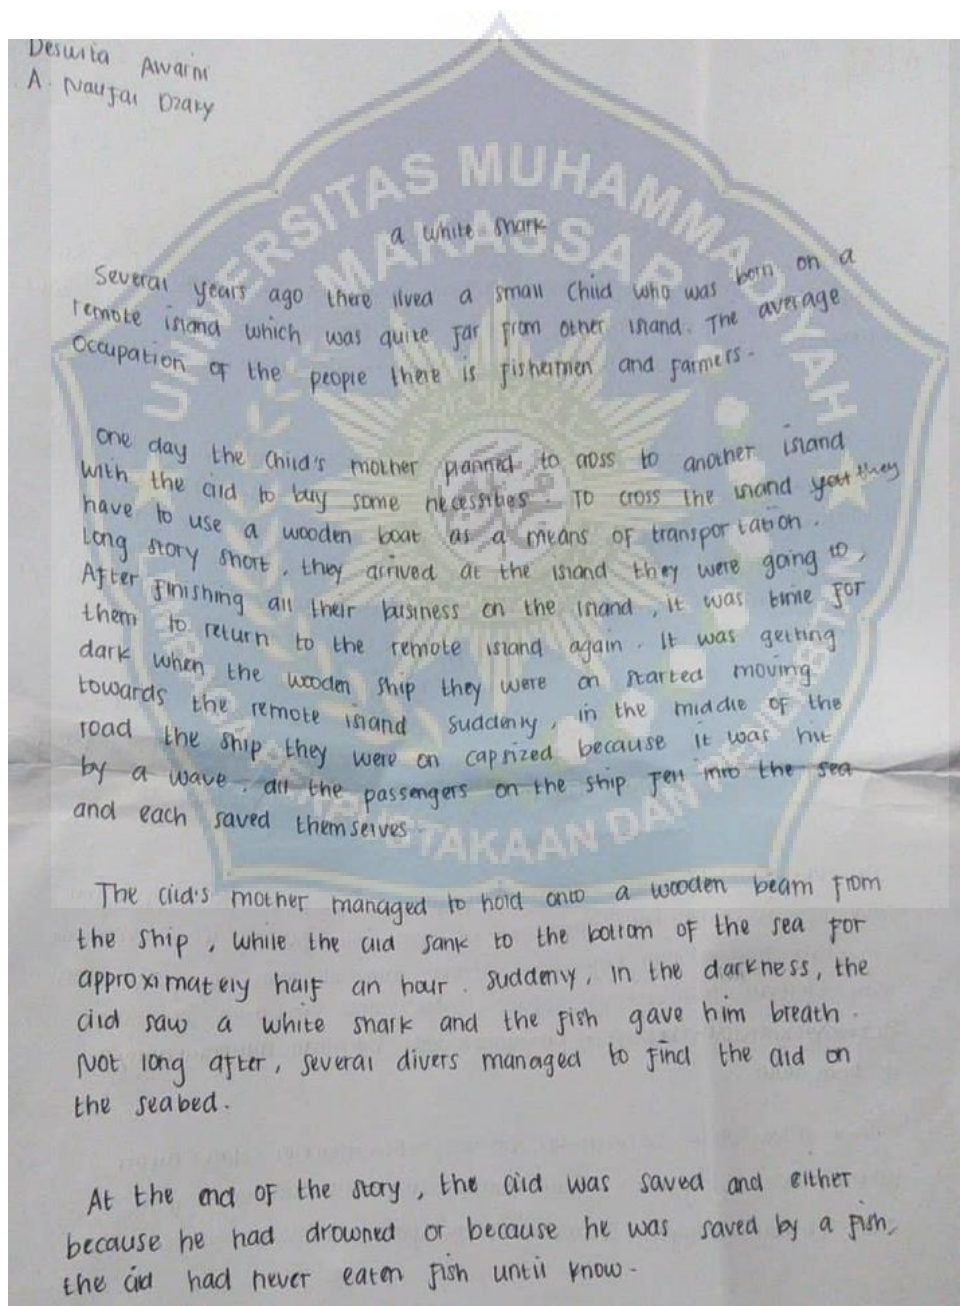 Deswita Awarni
A. Naufal Dzaky
UNIVERSITAS MUHAMMADIYAH
MAKASSAR
a white shark
Several years ago there lived a small child who was born on a
remote island which was quite far from other island. The average
Occupation of the people there is fishermen and farmers.
One day the child's mother planned to cross to another island
with the cild to buy some necessities. To cross the island they
have to use a wooden boat as a means of transportation.
Long story short, they arrived at the island they were going to,
After finishing all their business on the island, it was time for
them to return to the remote island again. It was getting
dark when the wooden ship they were on started moving
towards the remote island suddenly, in the middle of the
road the ship they were on capsized because it was hit
by a wave. all the passengers on the ship fell into the sea
and each saved themselves
PERPUSTAKAAN DAN PENERBITAN
The cild's mother managed to hold onto a wooden beam from
the ship, while the cild sank to the bottom of the sea for
approximately half an hour. suddenly, in the darkness, the
cild saw a white shark and the fish gave him breath.
Not long after, several divers managed to find the cild on
the seabed.
At the end of the story, the cild was saved and either
because he had drowned or because he was saved by a fish,
the cild had never eaten fish until know.